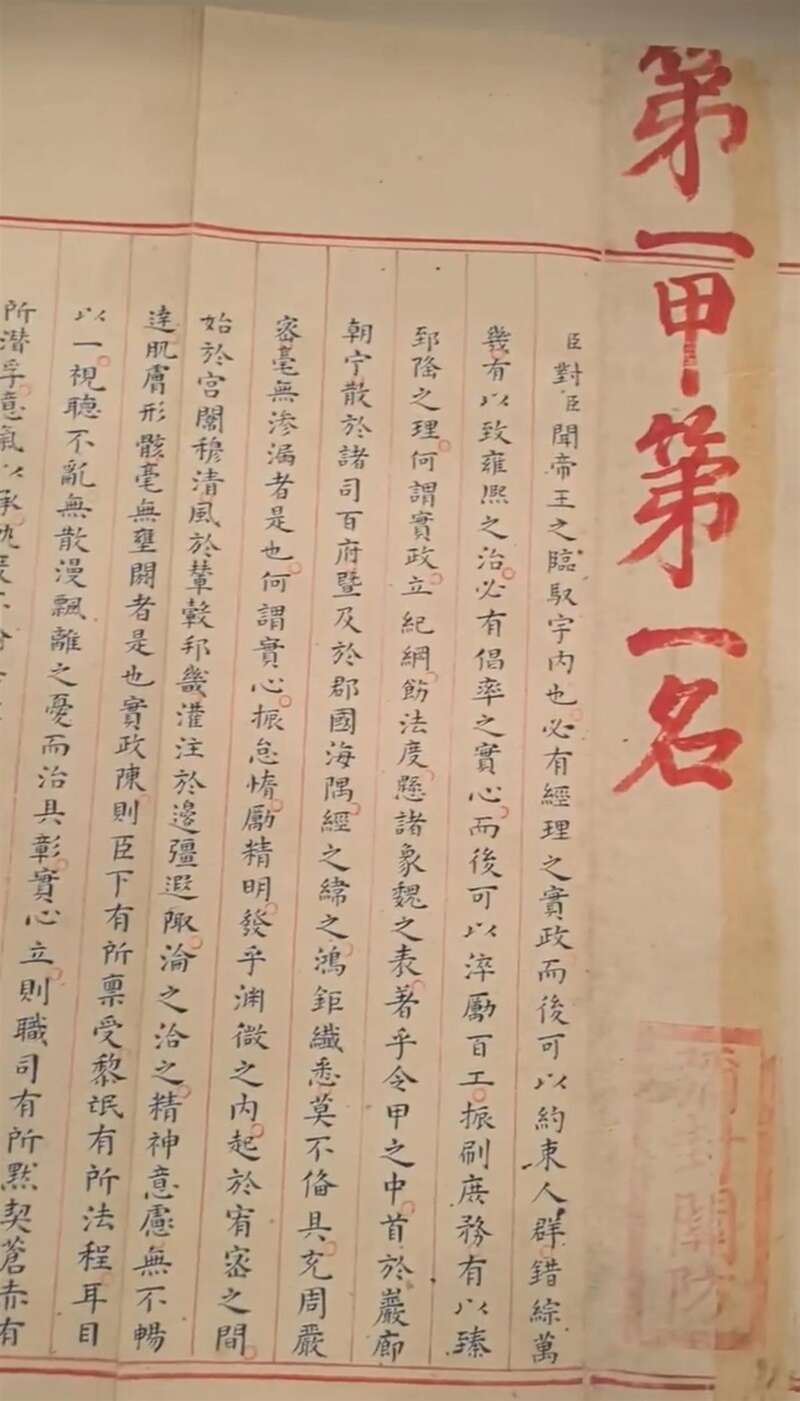 第一甲第一名
臣對臣聞帝王之臨馭宇內也必有經理之實政而後可以約束人群錯綜萬
幾有以致雍熈之治必有倡率之實心而後可以淬勵百工振刷庶務有以臻
郅隆之理何謂實政立紀綱飭法度懸諸象魏之表著乎令甲之中首於巖廊
朝宁散於諸司百府暨及於郡國海隅經之緯之鴻鉅纖悉莫不偹具充周嚴
宻毫無滲漏者是也何謂實心振怠惰勵精明發乎渊微之內起於宥宻之間
始於宫閫穆清風於輦轂邦畿灌注於邊疆遐陬淪之洽之精神意慮無不暢
達肌膚形骸毫無壅閼者是也實政陳則臣下有所禀受黎氓有所法程耳目
以一視聽不亂無散漫飄離之憂而治具彰實心立則職司有所默契蒼赤有
所潜孚意氣以承